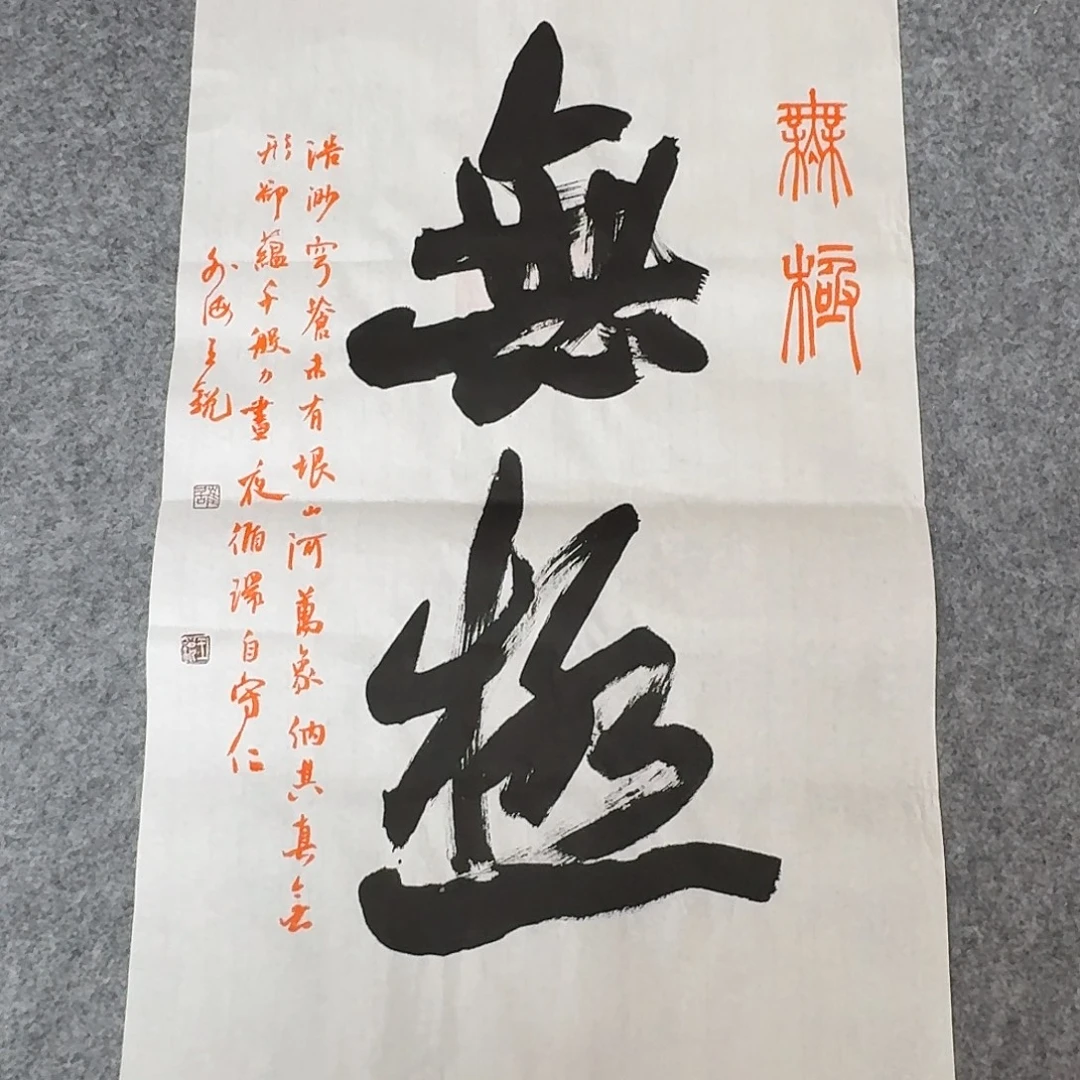 無極
無極
浩渺穹蒼未有垠山河萬象納其真無
形卻蘊千般力晝夜循環自守仁
王銳